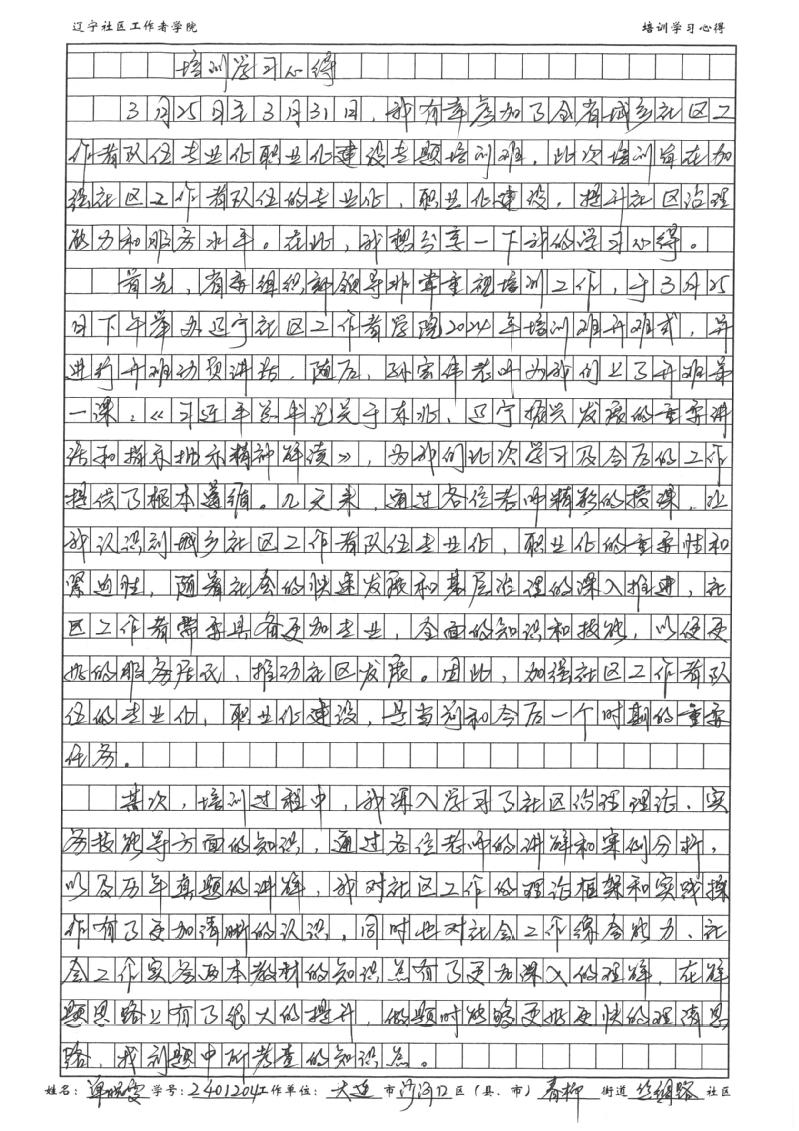 辽宁社区工作者学院 培训学习心得
培训学习心得
3月25日至3月31日，我有幸参加了全省城乡社区工
作者队伍专业化职业化建设专题培训班。此次培训旨在加
强社区工作者队伍的专业化、职业化建设，提升社区治理
能力和服务水平。在此，我想分享一下我的学习心得。
首先，省委组织部领导非常重视培训工作，于3月25
日下午举办辽宁社区工作者学院2024年培训班开班式，并
进行开班动员讲话，随后，孙宏伟老师为我们上了开班第
一课：《习近平总书记关于东北、辽宁振兴发展的重要讲
话和指示批示精神解读》，为我们此次学习及今后的工作
提供了根本遵循。几天来，通过各位老师精彩的授课，让
我认识到城乡社区工作者队伍专业化，职业化的重要性和
紧迫性，随着社会的快速发展和基层治理的深入推进，社
区工作者需要具备更加专业，全面的知识和技能，以便更
好的服务居民，推动社区发展。因此，加强社区工作者队
伍的专业化，职业化建设，是当前和今后一个时期的重要
任务。
其次，培训过程中，我深入学习了社区治理理论、实
务技能等方面的知识，通过各位老师的讲解和案例分析，
以及历年真题的讲解，我对社区工作的理论框架和实践操
作有了更加清晰的认识，同时也对社会工作综合能力、社
会工作实务两本教材的知识点有了更加深入的理解，在解
题思路上有了很大的提升，做题时能够更好更快的理清思
路，找到题中所考查的知识点。
姓名： 学号：2401204 工作单位：大连 市 沙河口 区（县、市） 春柳 街道 丝绸路 社区